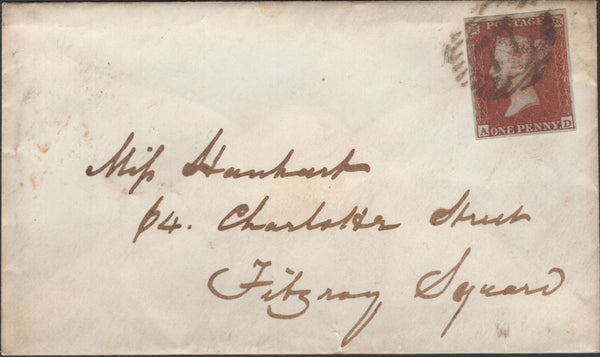 POSTAGE
A ONE PENNY D
Miſs Hanhart
64. Charlotte Street
Fitzroy Square